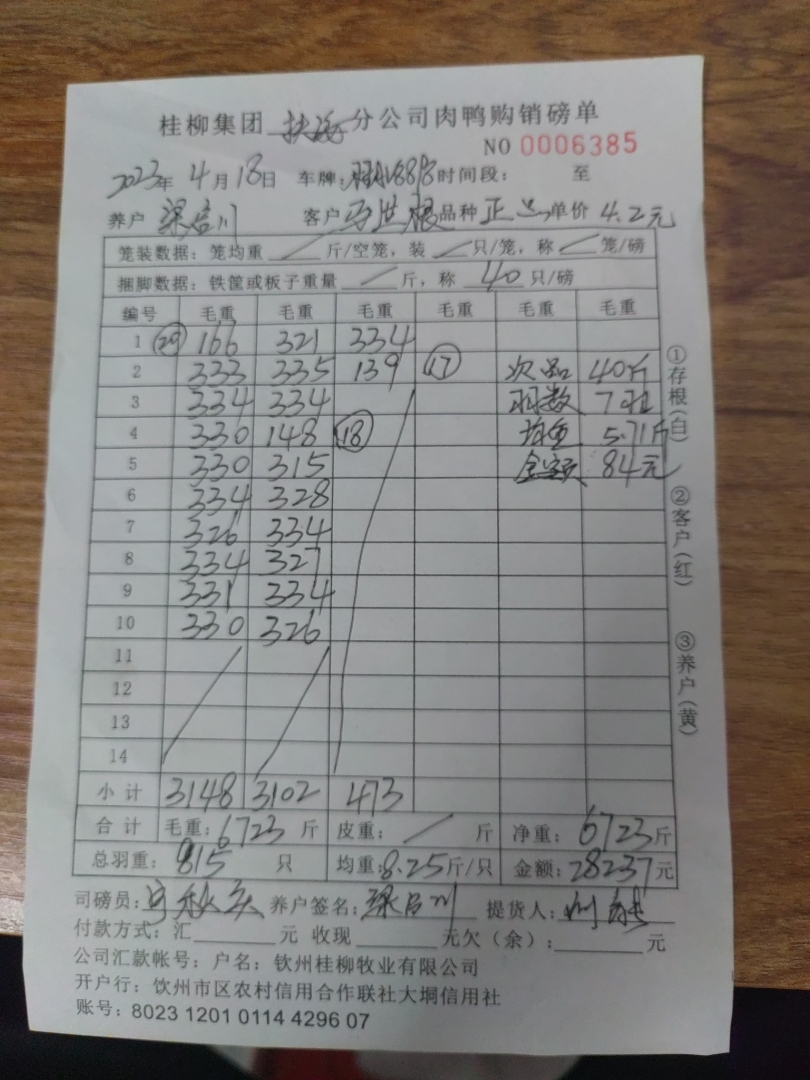 桂柳集团 扶 分公司肉鸭购销磅单
NO 0006385
2023年 4月18日 车牌: 时间段: 至
养户 梁启川 客户 马世根 品种 正 单价 4.2元
笼装数据: 笼均重 / 斤/空笼, 装 / 只/笼, 称 / 笼/磅
捆脚数据: 铁筐或板子重量 / 斤, 称 40 只/磅
编号 毛重 毛重 毛重 毛重 毛重 毛重
1 20 166 321 334
2 333 335 139 17 次品 40斤
3 334 334 羽数 7羽
4 330 148 18 均重 5.71斤
5 330 315 金额 84元
6 334 328
7 326 334
8 334 327
9 331 334
10 330 326
11
12
13
14
小计 3148 3102 473
合计 毛重: 6723 斤 皮重: / 斤 净重: 6723斤
总羽重: 815 只 均重: 8.25斤/只 金额: 28237元
司磅员: 养户签名: 梁启川 提货人:
付款方式: 汇 元 收现 元欠(余): 元
公司汇款帐号: 户名: 钦州桂柳牧业有限公司
开户行: 钦州市区农村信用合作联社大垌信用社
账号: 8023 1201 0114 4296 07
①存根(白)
②客户(红)
③养户(黄)